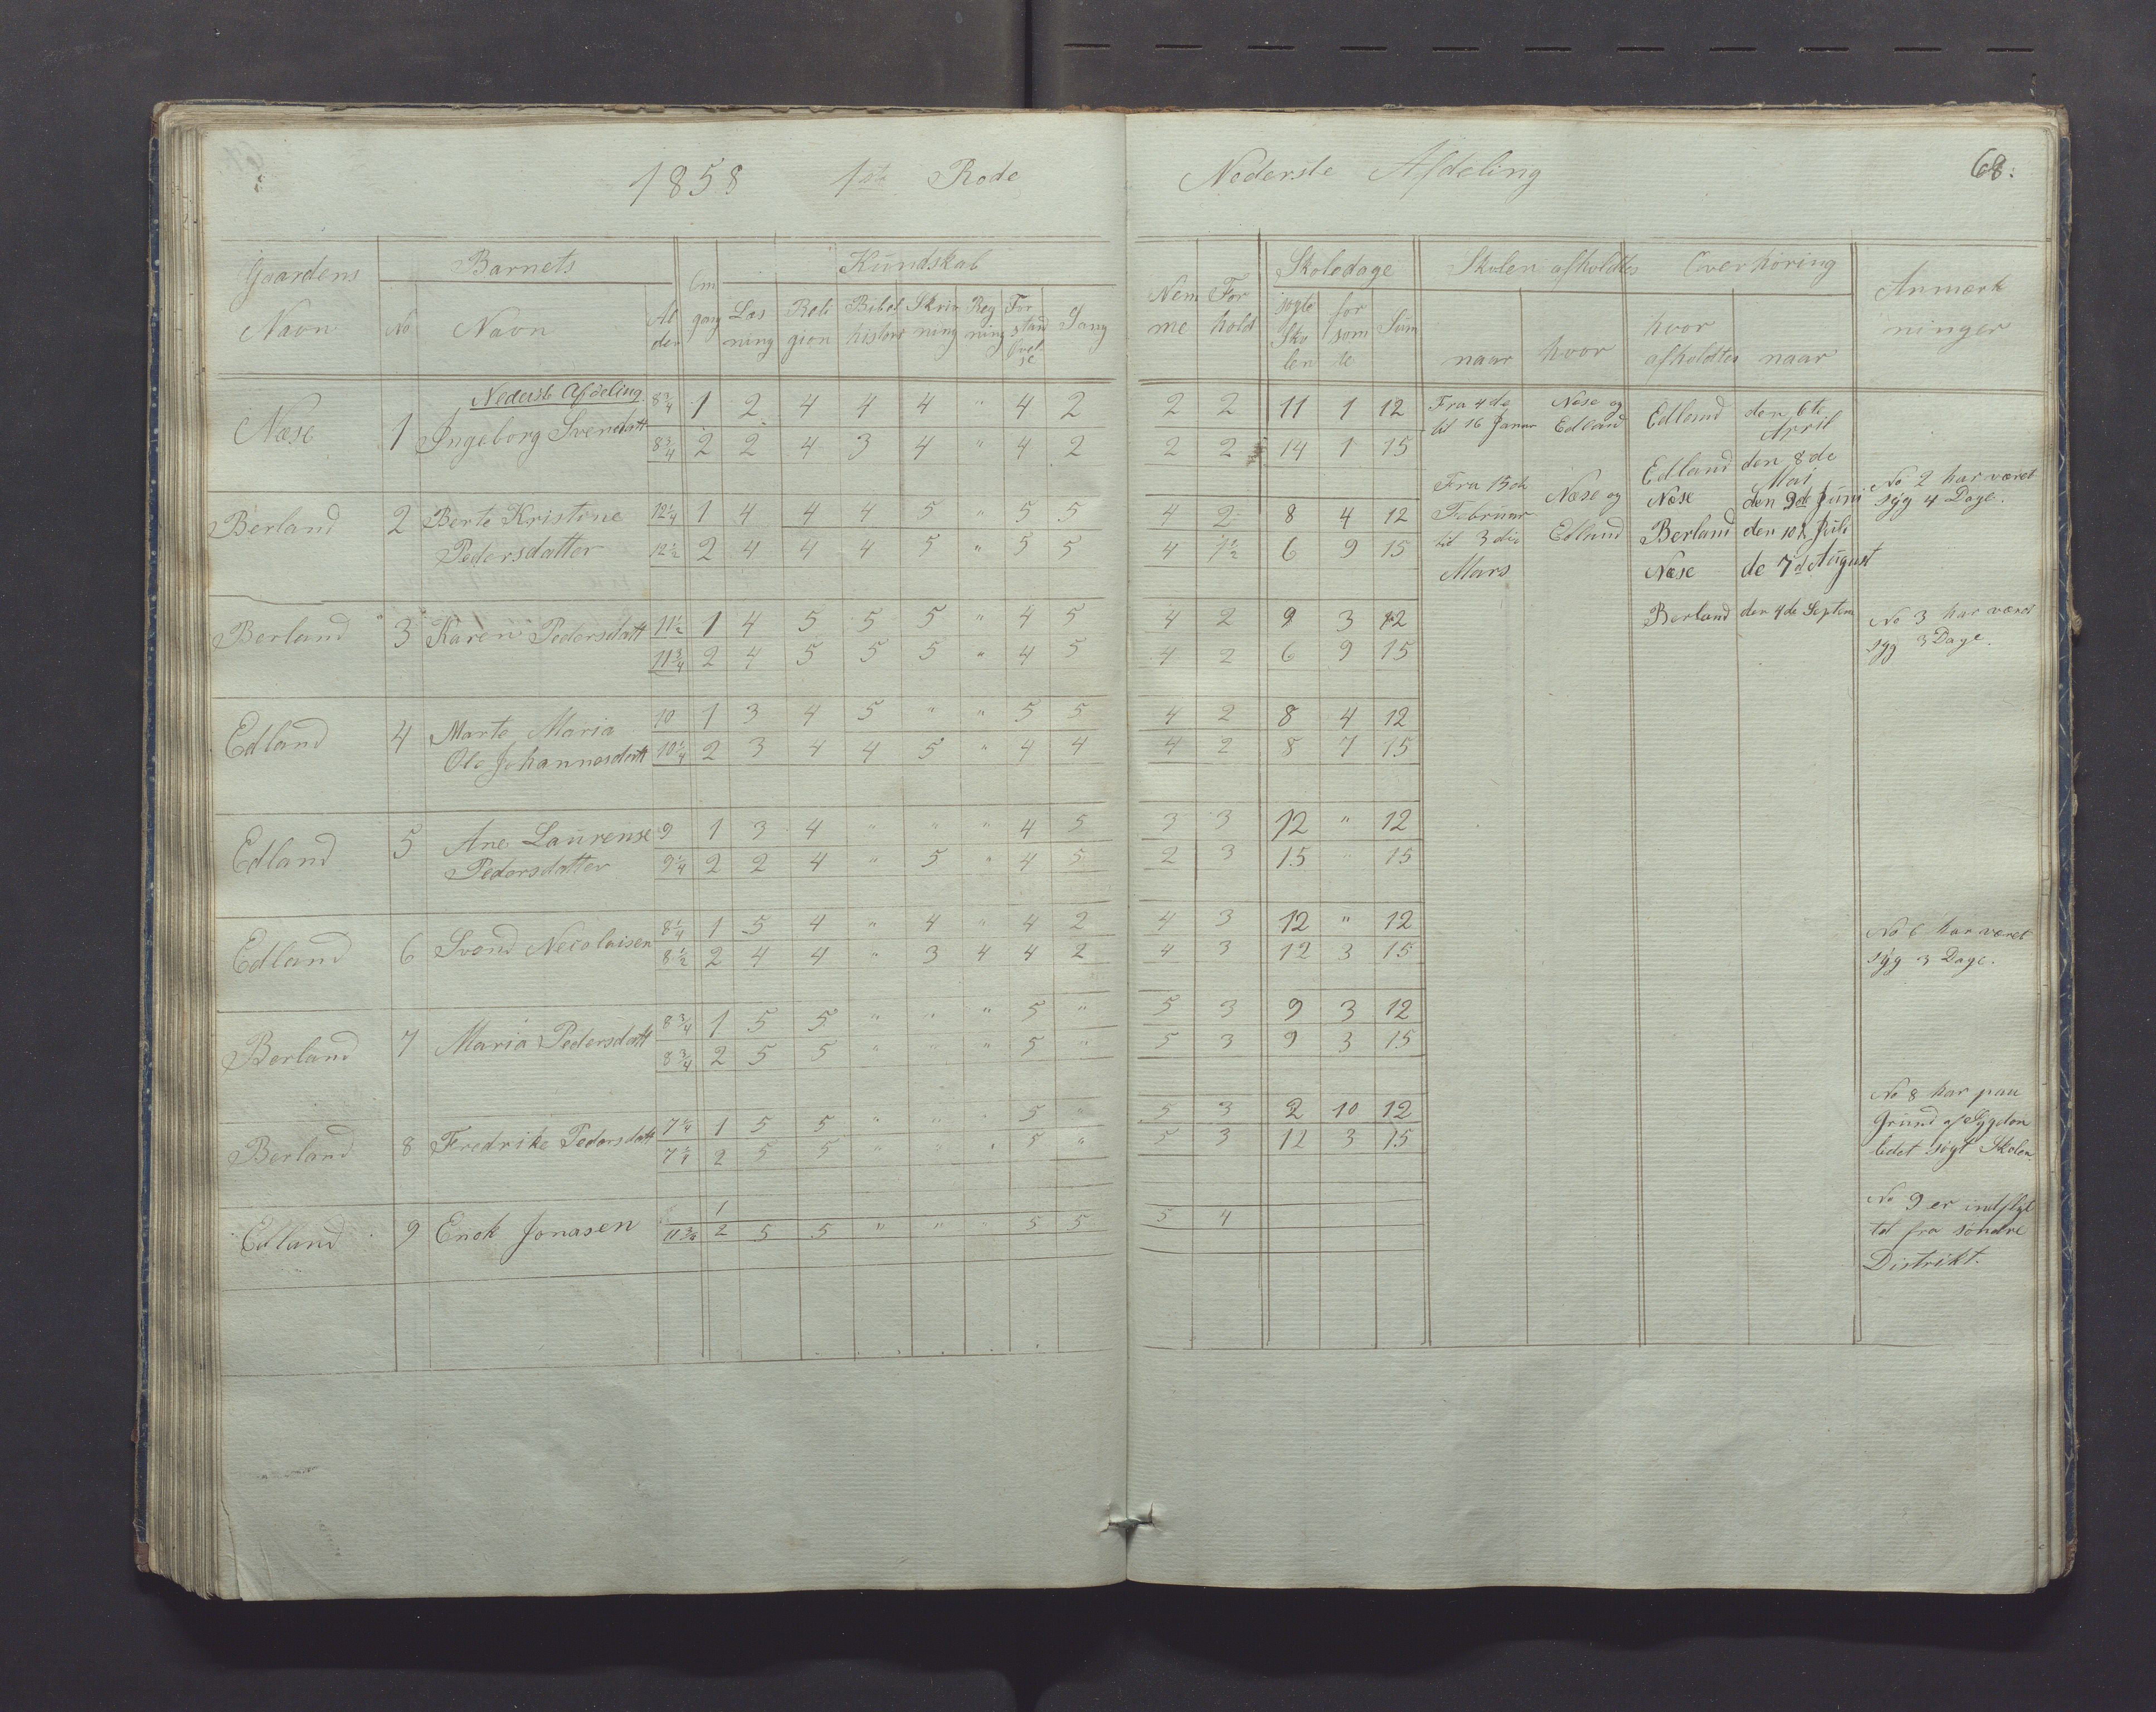 1858 1ste Rode
Nederste Afdeling 68:
Gaardens Navn | Barnets No | Navn | Alder | Omgang | Kundskab Læsning | Religion | Bibelhistorie | Skrivning | Regning | Forstandsøvelse | Sang | Nemme | Forhold | Skoledage søgte Skolen | forsømte | Sum | Skolen afholdtes naar | hvor | Overhøring hvor afholdtes | naar | Anmærkninger
Nederste Afdeling
Næse 1 Ingeborg Svendsdatt 8 3/4 1 2 4 4 4 " 4 2 2 2 11 1 12
8 3/4 2 2 4 3 4 " 4 2 2 2 14 1 15
Berland 2 Berte Kristine 12 1/4 1 4 4 4 5 " 5 5 4 2 8 4 12
Pedersdatter 12 1/2 2 4 4 4 5 " 5 5 4 1 1/2 6 9 15
Berland 3 Karen Pedersdatt 11 1/2 1 4 5 5 5 " 4 5 4 2 9 3 12
11 3/4 2 4 5 5 5 " 4 5 4 2 6 9 15
Edland 4 Marte Maria 10 1 3 4 5 " " 5 5 4 2 8 4 12
Ole Johannesdatt 10 1/4 2 3 4 4 5 " 4 4 4 2 8 7 15
Edland 5 Ane Laurense 9 1 3 4 " " " 4 5 3 3 12 " 12
Pedersdatter 9 1/4 2 2 4 " 5 " 4 5 2 3 15 " 15
Edland 6 Svend Necolaisen 8 1/4 1 5 4 " 4 " 4 2 4 3 12 " 12
8 1/2 2 4 4 " 3 4 4 2 4 3 12 3 15
Berland 7 Maria Pedersdatt 8 3/4 1 5 5 " " " 5 " 5 3 9 3 12
8 3/4 2 5 5 " " " 5 " 5 3 9 3 15
Berland 8 Fredrike Pedersdatt 7 1/4 1 5 5 " " " 5 " 5 3 2 10 12
7 1/4 2 5 5 " " " 5 " 5 3 12 3 15
1
Edland 9 Enok Jonasen 11 3/4 2 5 5 " " " 5 5 5 4
Fra 4de
til 16 Januar
Næse og
Edland
Fra 15de
Februar
til 3die
Mars
Næse og
Edland
Edland den 6te
April
Edland den 8de
Mai
Næse den 9de Juni
Berland den 10de Juli
Næse de 7de August
Berland den 4de Septem
No 2 har været
syg 4 Dage.
No 3 har været
syg 3 Dage.
No 6 har været
syg 3 Dage.
No 8 har paa
Grund af Sygdom
lidet søgt Skolen.
No 9 er indflyt
tet fra søndre
Distrikt.